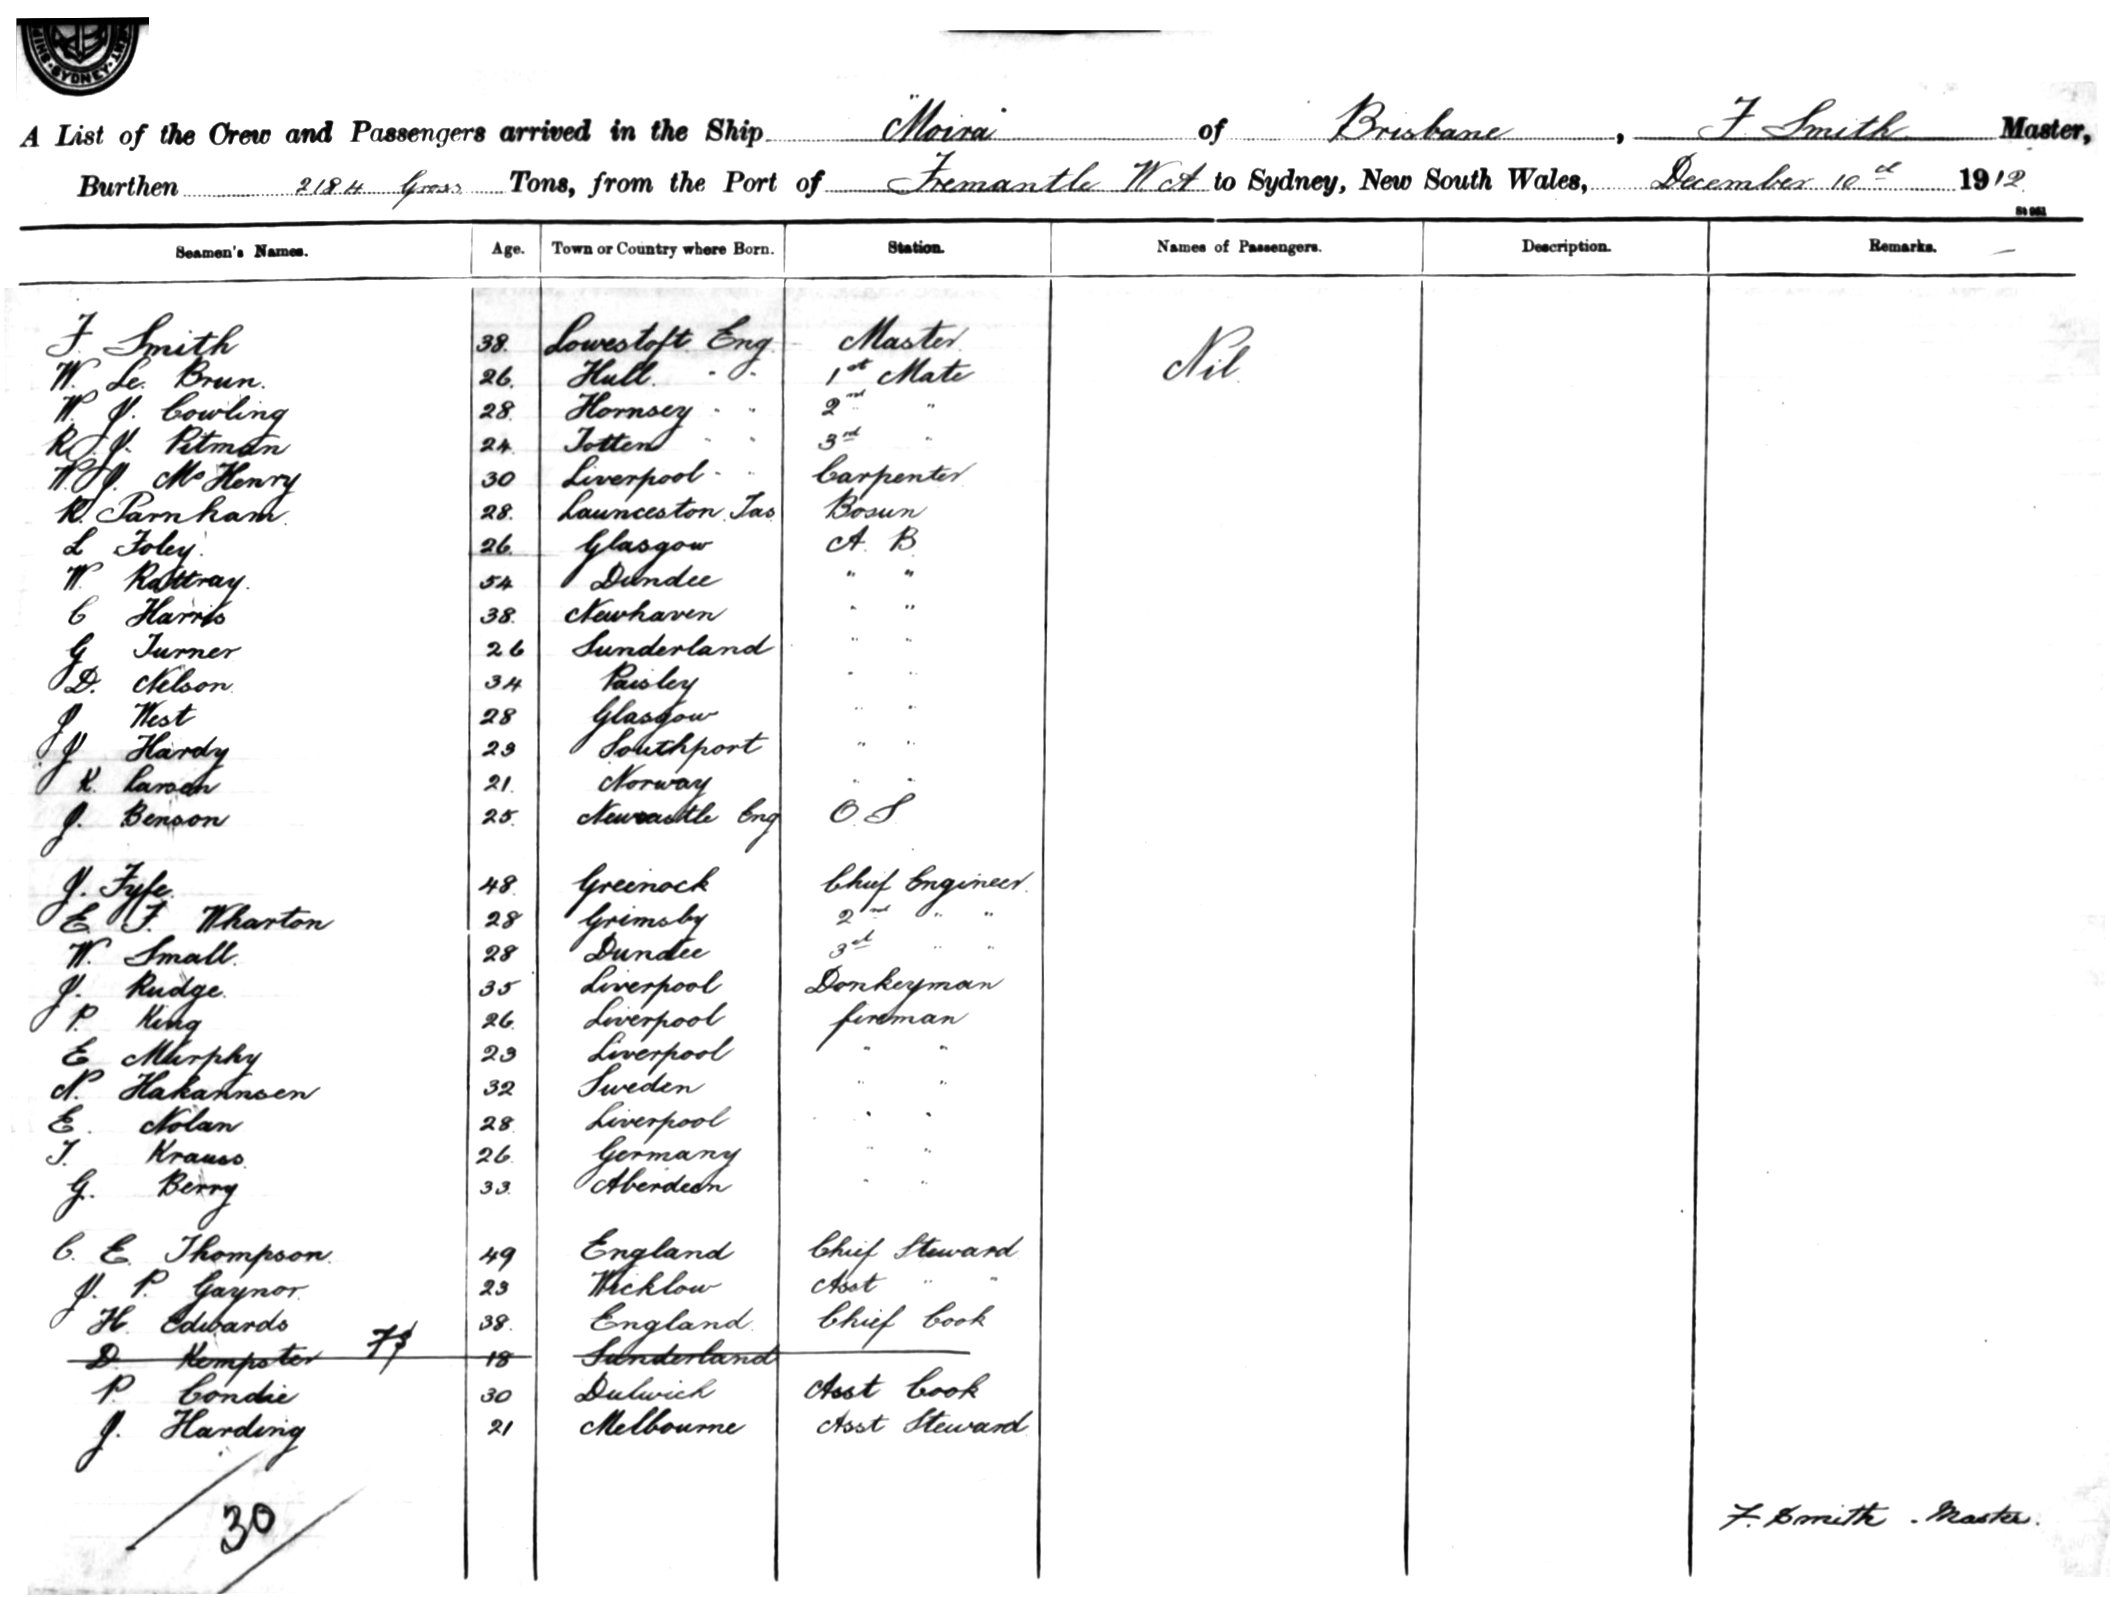 SHIP SYDNEY
A List of the Crew and Passengers arrived in the Ship "Moira" of Brisbane, F Smith Master,
Burthen 2184 Gross Tons, from the Port of Fremantle W A to Sydney, New South Wales, December 10th 1912
Seamen's Names. Age. Town or Country where Born. Station. Names of Passengers. Description. Remarks.
F. Smith 38. Lowestoft. Eng. Master. Nil.
W. Le. Brun. 26. Hull. " " 1st Mate
W J. Cowling 28. Hornsey " " 2nd "
R. J. Pitman 24. Totten " " 3rd "
W. J. McHenry 30 Liverpool " " Carpenter
R. Parnham. 28. Launceston. Tas Bosun
L Foley. 26. Glasgow A. B.
W. Rattray. 54 Dundee " "
C Harris 38. Newhaven " "
G Turner 26 Sunderland " "
D. Nelson. 34 Paisley " "
J West 28 Glasgow " "
J Hardy 23 Southport " "
K. Larsen 21. Norway " "
J. Benson 25. Newcastle Eng O. S.
J. Fyfe. 48. Greenock Chief Engineer.
E. F. Wharton 28 Grimsby 2nd " "
W. Small. 28 Dundee 3rd " "
J. Rudge. 35 Liverpool Donkeyman
P. King 26. Liverpool fireman
E Murphy 23 Liverpool " "
N. Hakannsen 32 Sweden " "
E. Nolan 28. Liverpool " "
T. Krauss. 26. Germany " "
G. Berry 33. Aberdeen " "
C. E. Thompson. 49 England Chief Steward
J. P. Gaynor. 23 Wicklow Asst " "
H. Edwards 38. England. Chief Cook
D. Kempster FS 18 Sunderland
P. Condie 30 Dulwich Asst Cook
J. Harding 21 Melbourne Asst Steward
30
F. Smith. Master.